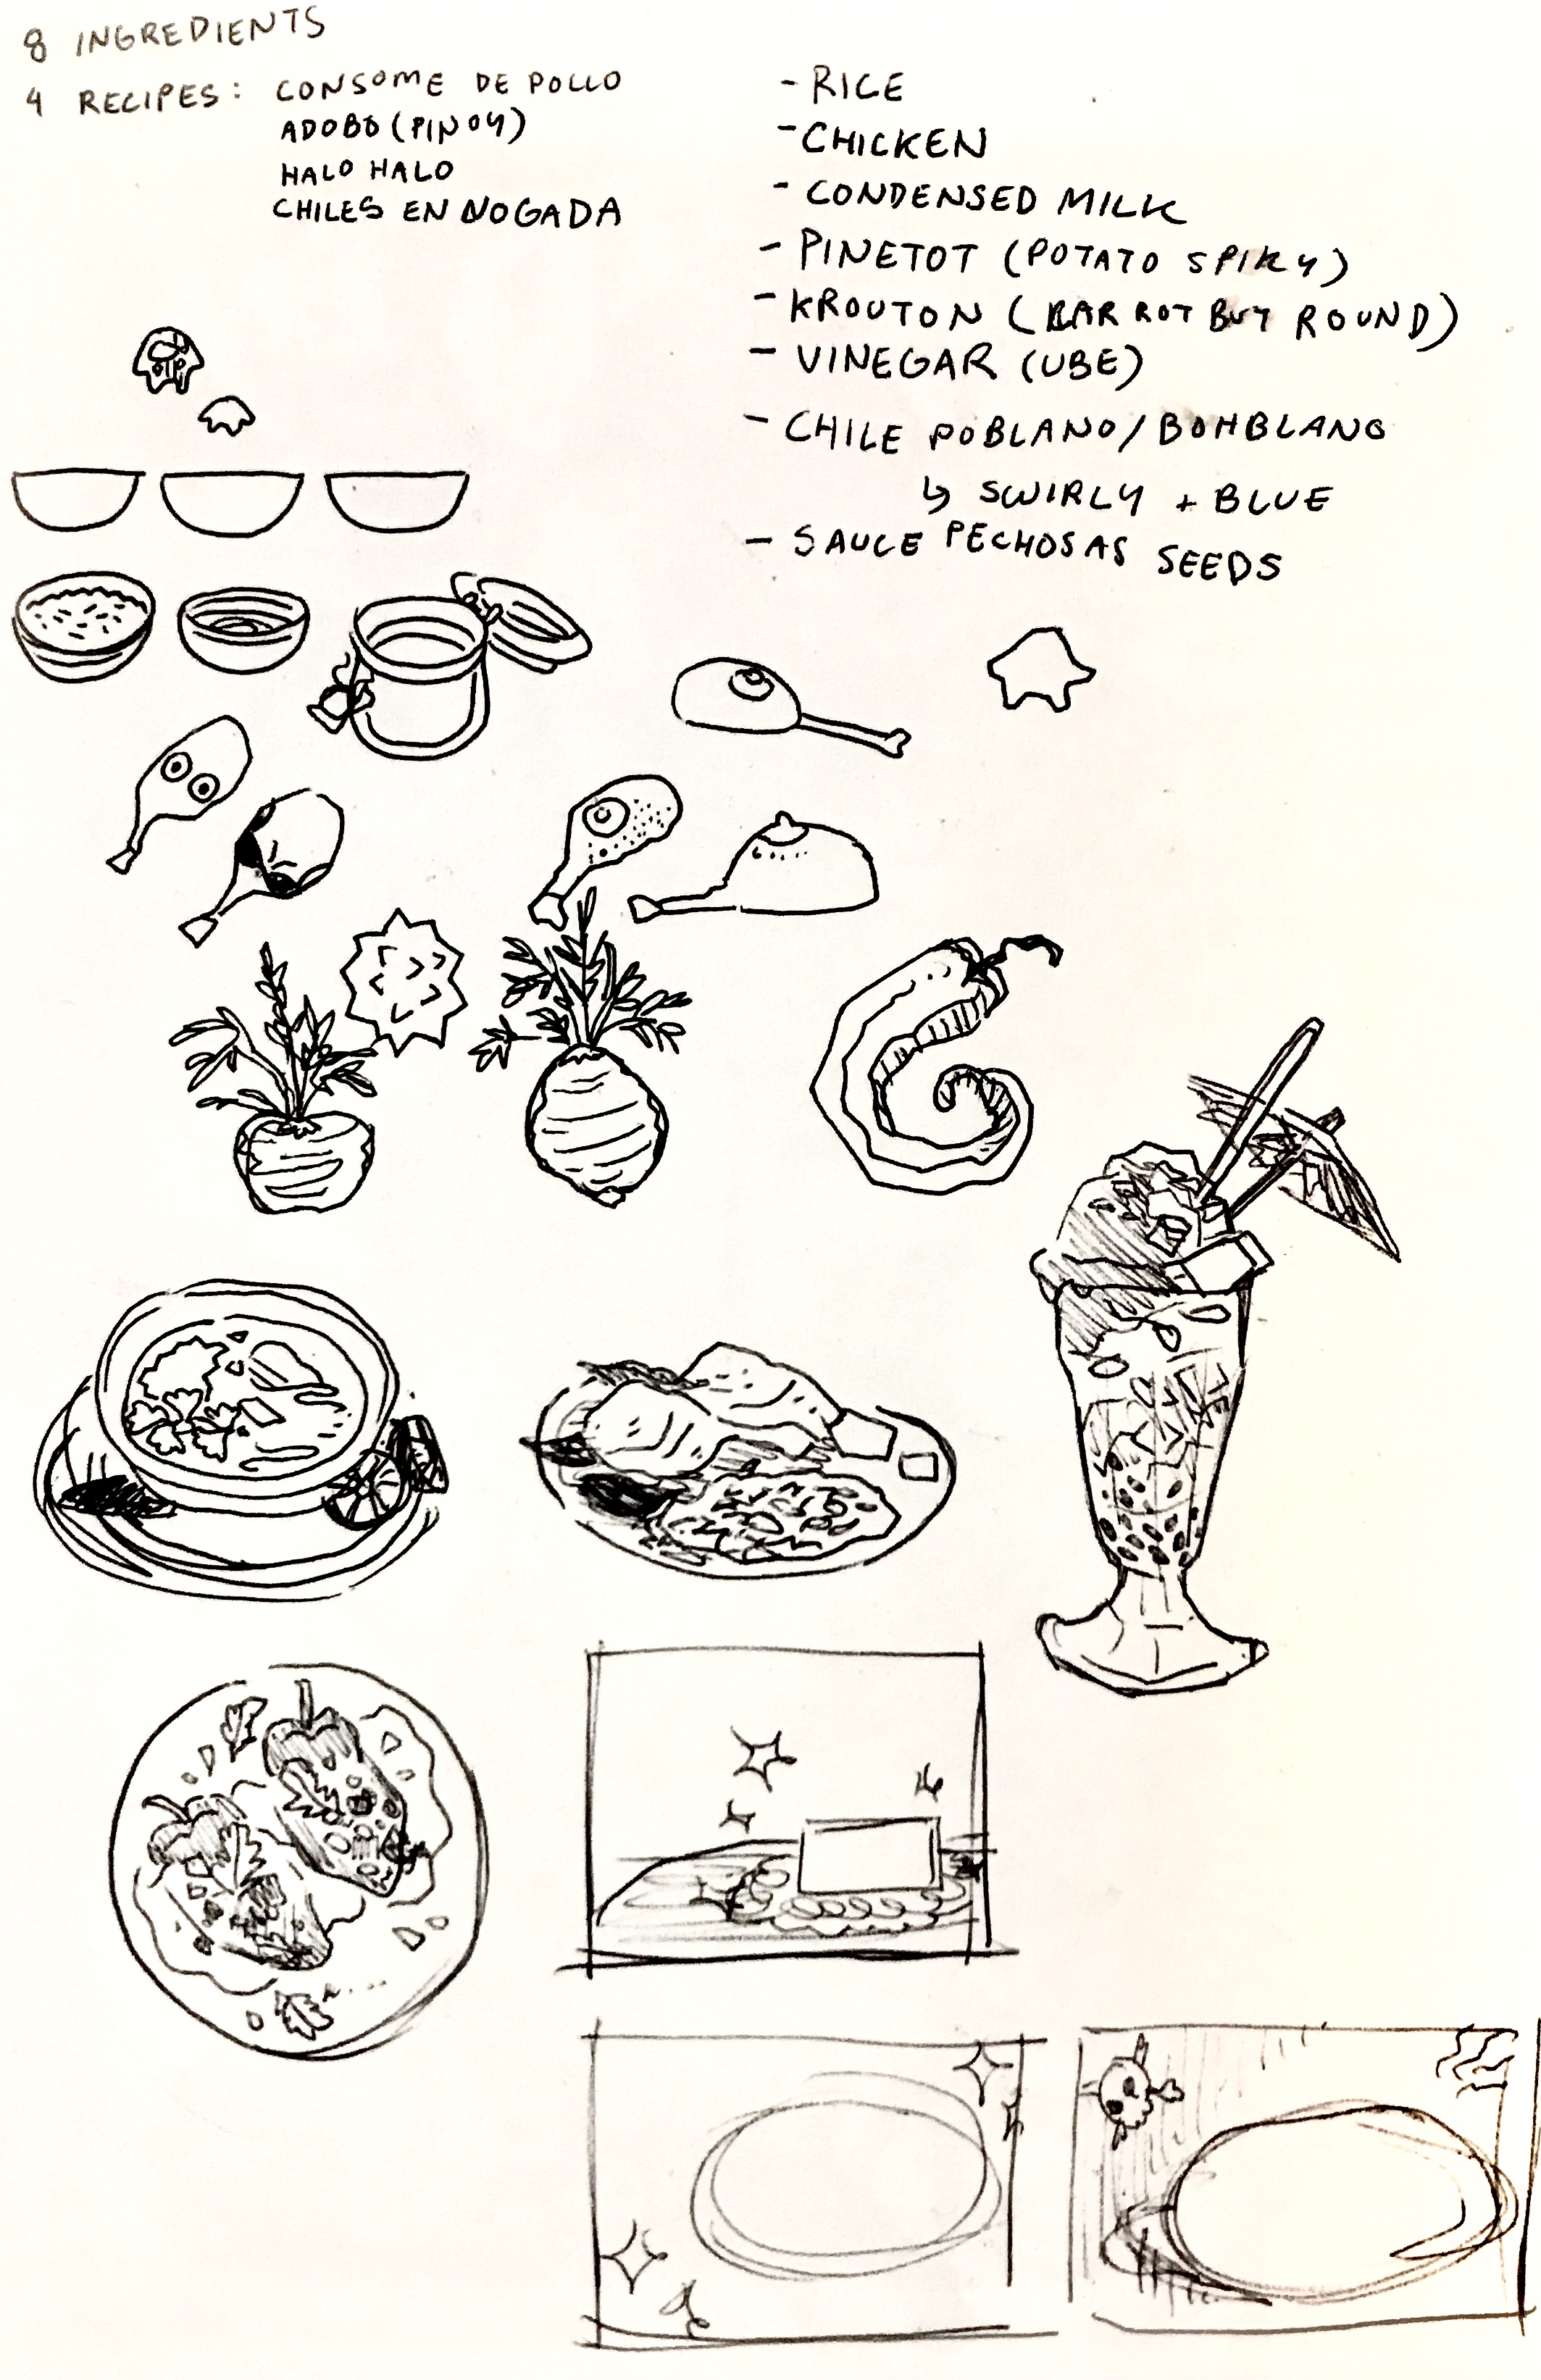 8 INGREDIENTS
4 RECIPES: CONSOME DE POLLO
ADOBO (PINOY)
HALO HALO
CHILES EN NOGADA
- RICE
- CHICKEN
- CONDENSED MILK
- PINETOT (POTATO SPIKY)
- KROUTON (KARROT BUT ROUND)
- VINEGAR (UBE)
- CHILE POBLANO/BOHBLANO
↳ SWIRLY + BLUE
- SAUCE PECHOSAS SEEDS